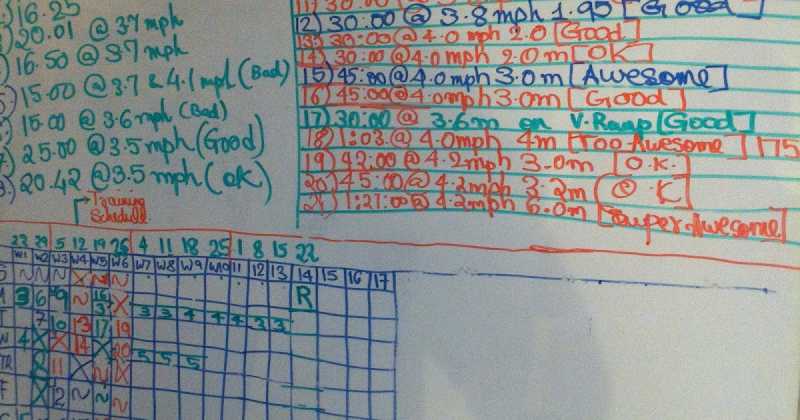 16.25
20.01 @ 3.7 mph
16.50 @ 3.7 mph
15.00 @ 3.7 & 4.1 mpl (Bad)
15.00 @ 3.6 mph (Bad)
25.00 @ 3.5 mph (Good)
20.42 @ 3.5 mph (OK)
12) 30:00 @ 3.8 mph 1.90 [Good]
13) 30:00 @ 4.0 mph 2.0 [Good]
14) 30:00 @ 4.0 mph 2.0 m [OK]
15) 45:00 @ 4.0 mph 3.0 m [Awesome]
16) 45:00 @ 4.0 mph 3.0 m [Good]
17) 30:00 @ 3.6 m on V-Ramp [Good]
18) 1:03 @ 4.0 mph 4m [Too-Awesome] 175
19) 42:00 @ 4.2 mph 3.0 m [O.K.]
20) 45:00 @ 4.2 mph 3.2 m (O.K)
21) 1:21:00 @ 4.2 mph 6.0 m [Super-Awesome]
Training
Schedule
22 29 5 12 19 26 4 11 18 25 1 8 15 22
W1 W2 W3 W4 W5 W6 W7 W8 W9 W10 11 12 13 14 15 16 17
3 6 9 16 R
3 3 4 4 4 3 3
7 10 13 17 19
4 14 20
5 5 5
11
F 12